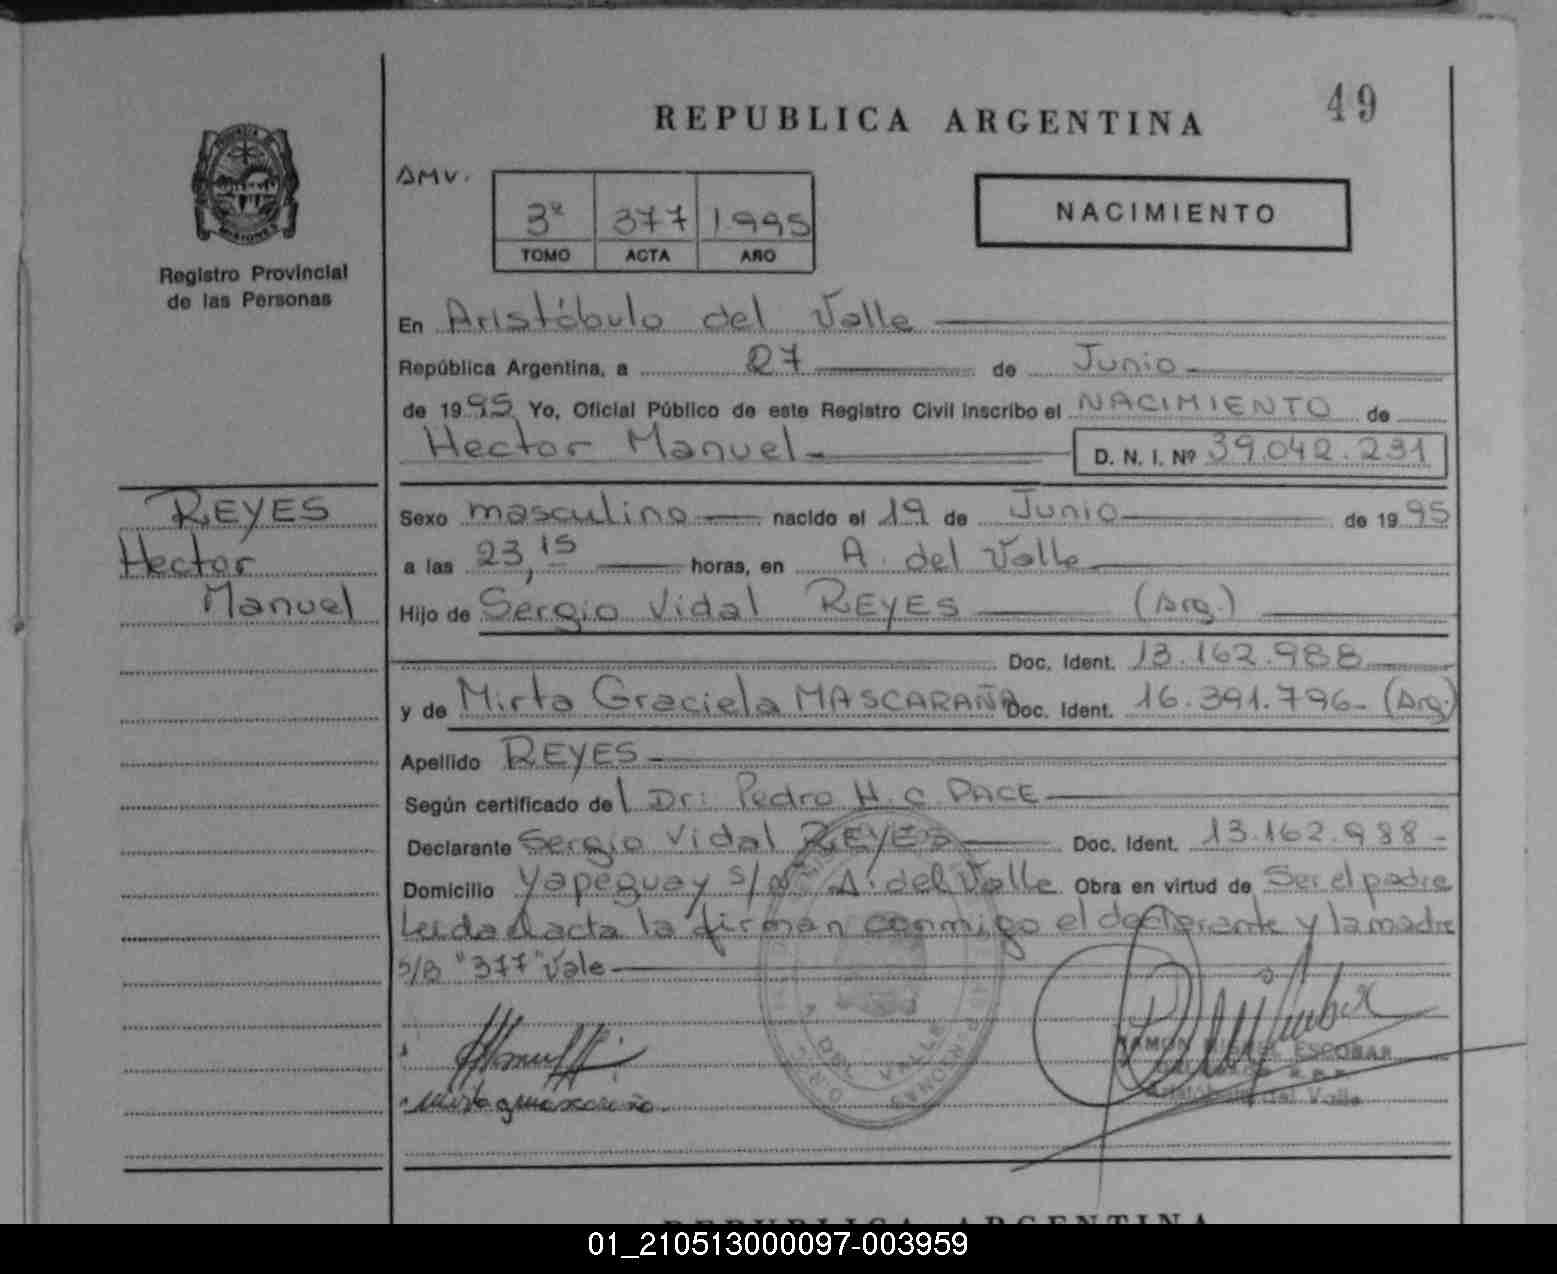 49
REPUBLICA ARGENTINA
AMV.
3º 377 1.995
TOMO ACTA AÑO
NACIMIENTO
MISIONES
Registro Provincial
de las Personas
En Aristóbulo del Valle
República Argentina, a 27 de Junio
de 1995 Yo, Oficial Público de este Registro Civil inscribo el NACIMIENTO de
Hector Manuel D. N. I. Nº 39.042.231
REYES
Hector
Manuel
Sexo masculino nacido el 19 de Junio de 1995
a las 23,15 horas, en A. del Valle
Hijo de Sergio Vidal REYES (Arg.)
Doc. Ident. 13.162.988
y de Mirta Graciela MASCARAÑA Doc. Ident. 16.391.796- (Arg.)
Apellido REYES
Según certificado del Dr: Pedro H. C PACE
Declarante Sergio Vidal REYES Doc. Ident. 13.162.988-
Domicilio Yapeguay s/nº A. del Valle Obra en virtud de Ser el padre
Leida el acta la firman conmigo el declarante y la madre
S/B "377" Vale
A. DEL VALLE
RAMON MIGUEL ESCOBAR
Aristóbulo del Valle
REPUBLICA ARGENTINA
01_210513000097-003959